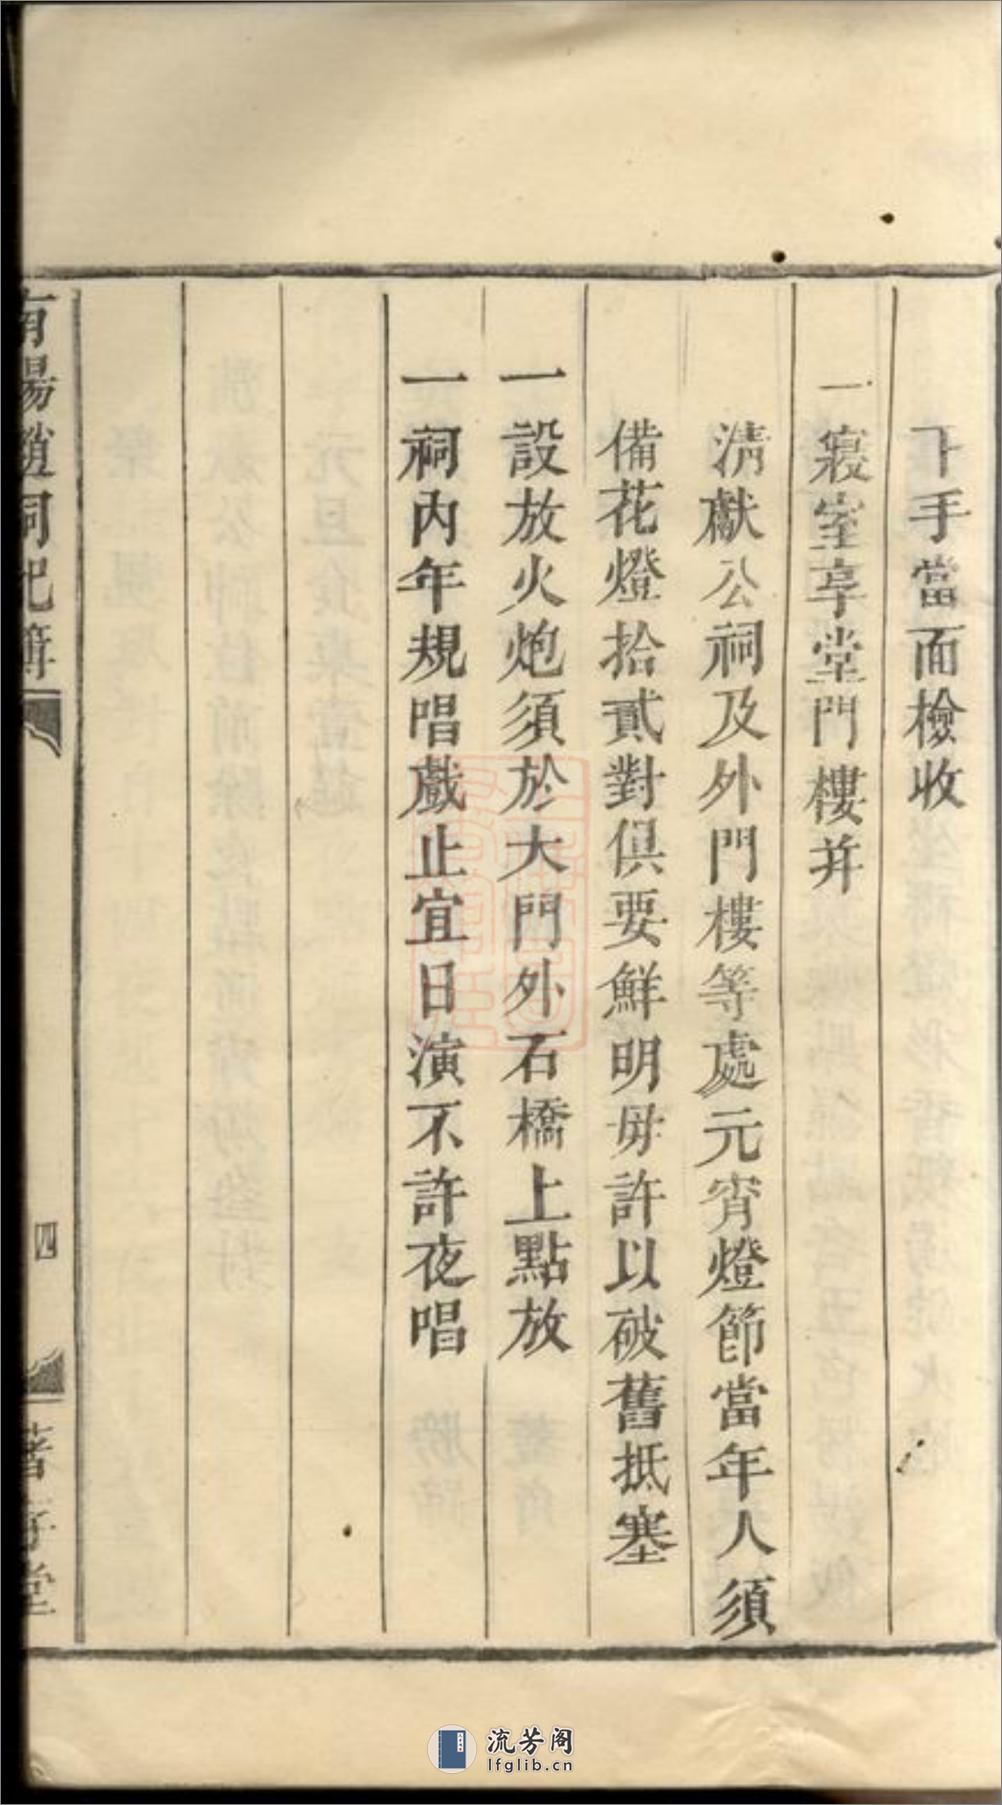 下手當面檢收
一寢室享堂門樓并
淸獻公祠及外門樓等處元宵燈節當年人須
備花燈拾貳對俱要鮮明毋許以破舊抵塞
一設放火炮須於大門外石橋上點放
一祠內年規唱戲止宜日演不許夜唱
南陽趙祠祀簿
四
孝堂
流芳阁
lfglib.cn